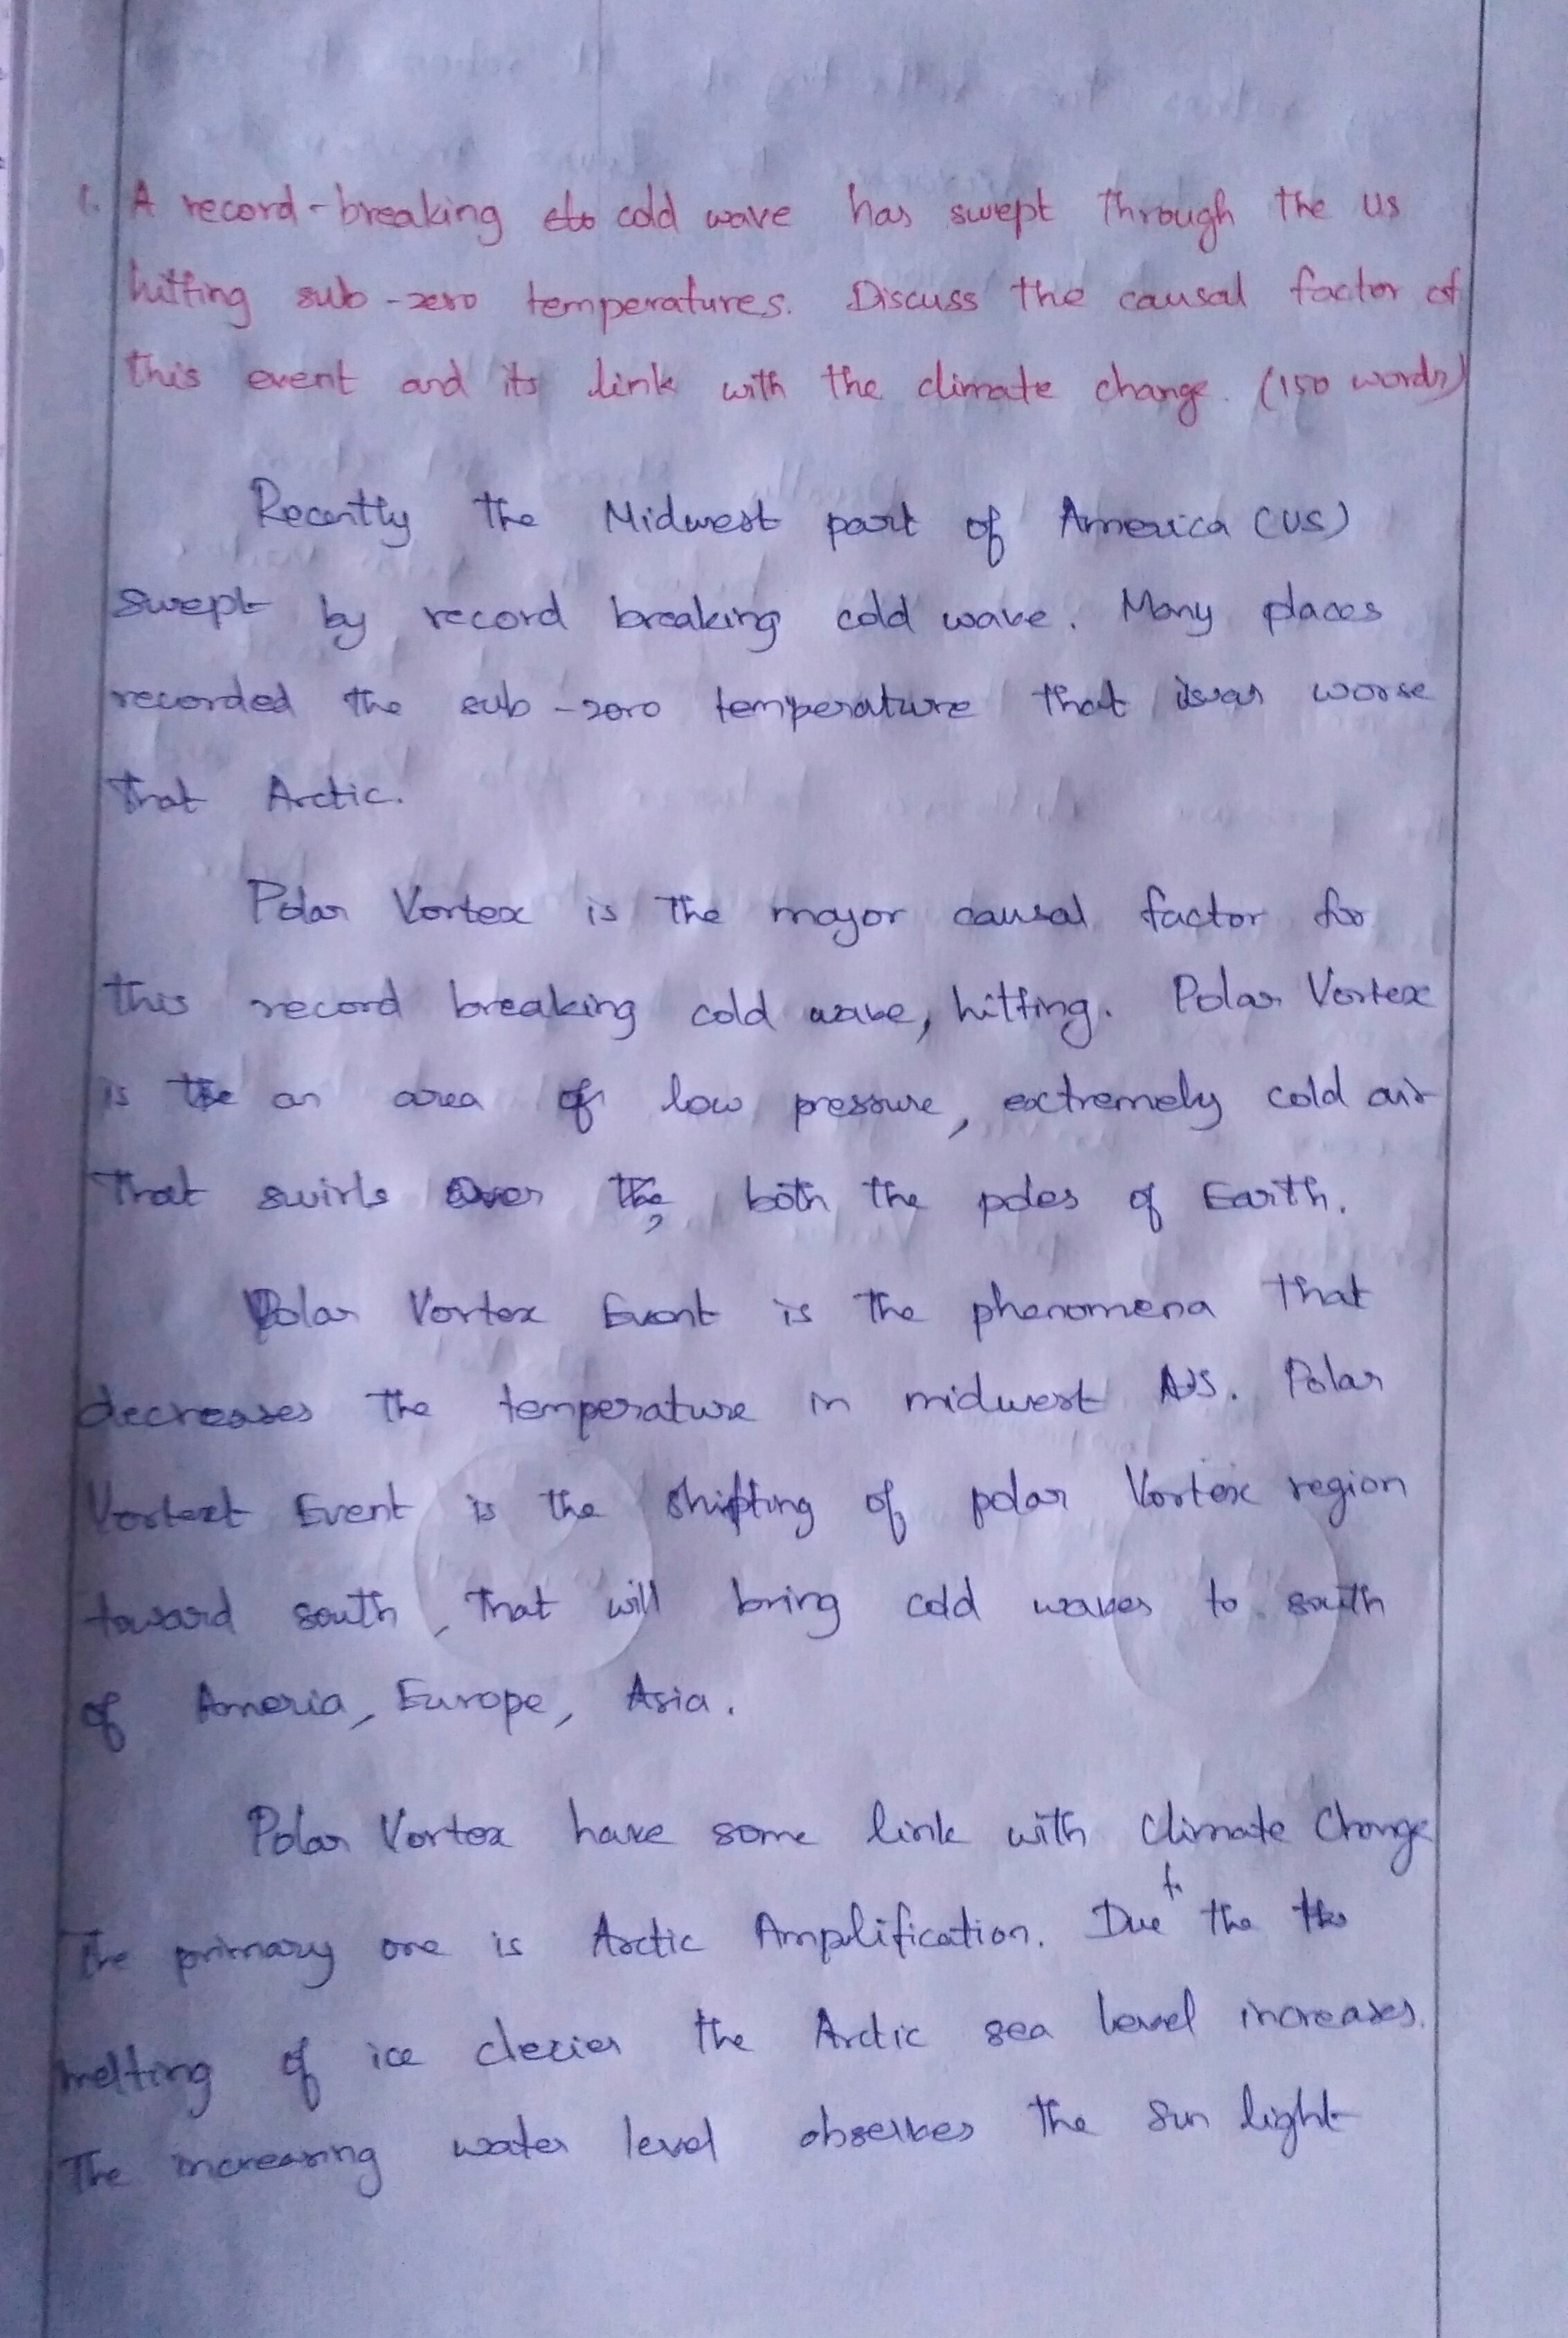 1. A record-breaking cold wave has swept through the US
hitting sub-zero temperatures. Discuss the causal factor of
this event and its link with the climate change. (150 words)
Recently the Midwest part of America (US)
swept by record breaking cold wave. Many places
recorded the sub-zero temperature that was worse
that Arctic.
Polar Vortex is the major causal factor for
this record breaking cold wave, hitting. Polar Vortex
is an area of low pressure, extremely cold air
that swirls over both the poles of Earth.
Polar Vortex Event is the phenomena that
decreases the temperature in midwest US. Polar
Vortext Event is the shifting of polar Vortex region
toward south, that will bring cold waves to south
of Ameria, Europe, Asia.
Polar Vortex have some link with Climate Change
The primary one is Arctic Amplification. Due to the
melting of ice clecier the Arctic sea level increases.
The increasing water level obserbes the sun light